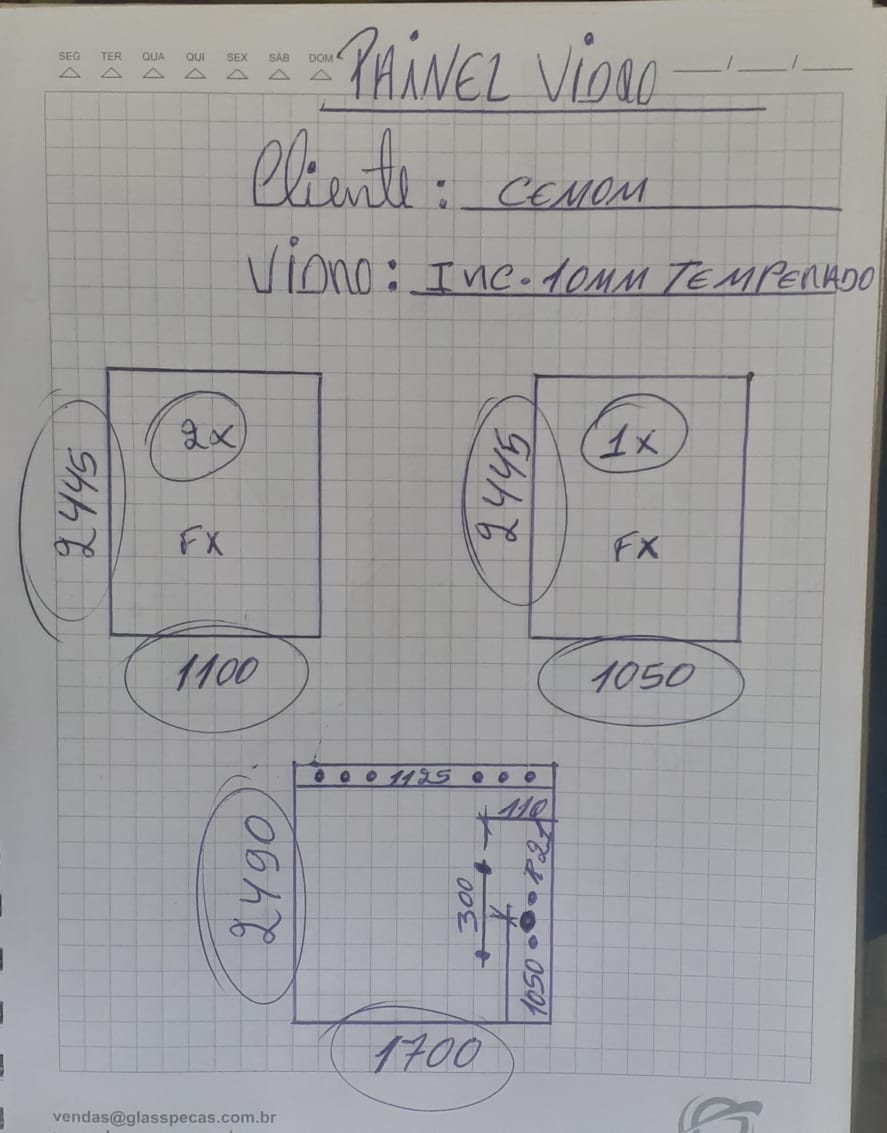 SEG TER QUA QUI SEX SÁB DOM
PAINEL VIDRO
__/__/__
Cliente: CEMOM
VIDRO: INC. 10MM TEMPERADO
2445
2X
FX
1100
2445
1X
FX
1050
1125
2490
110
300
1050
1700
vendas@glasspecas.com.br